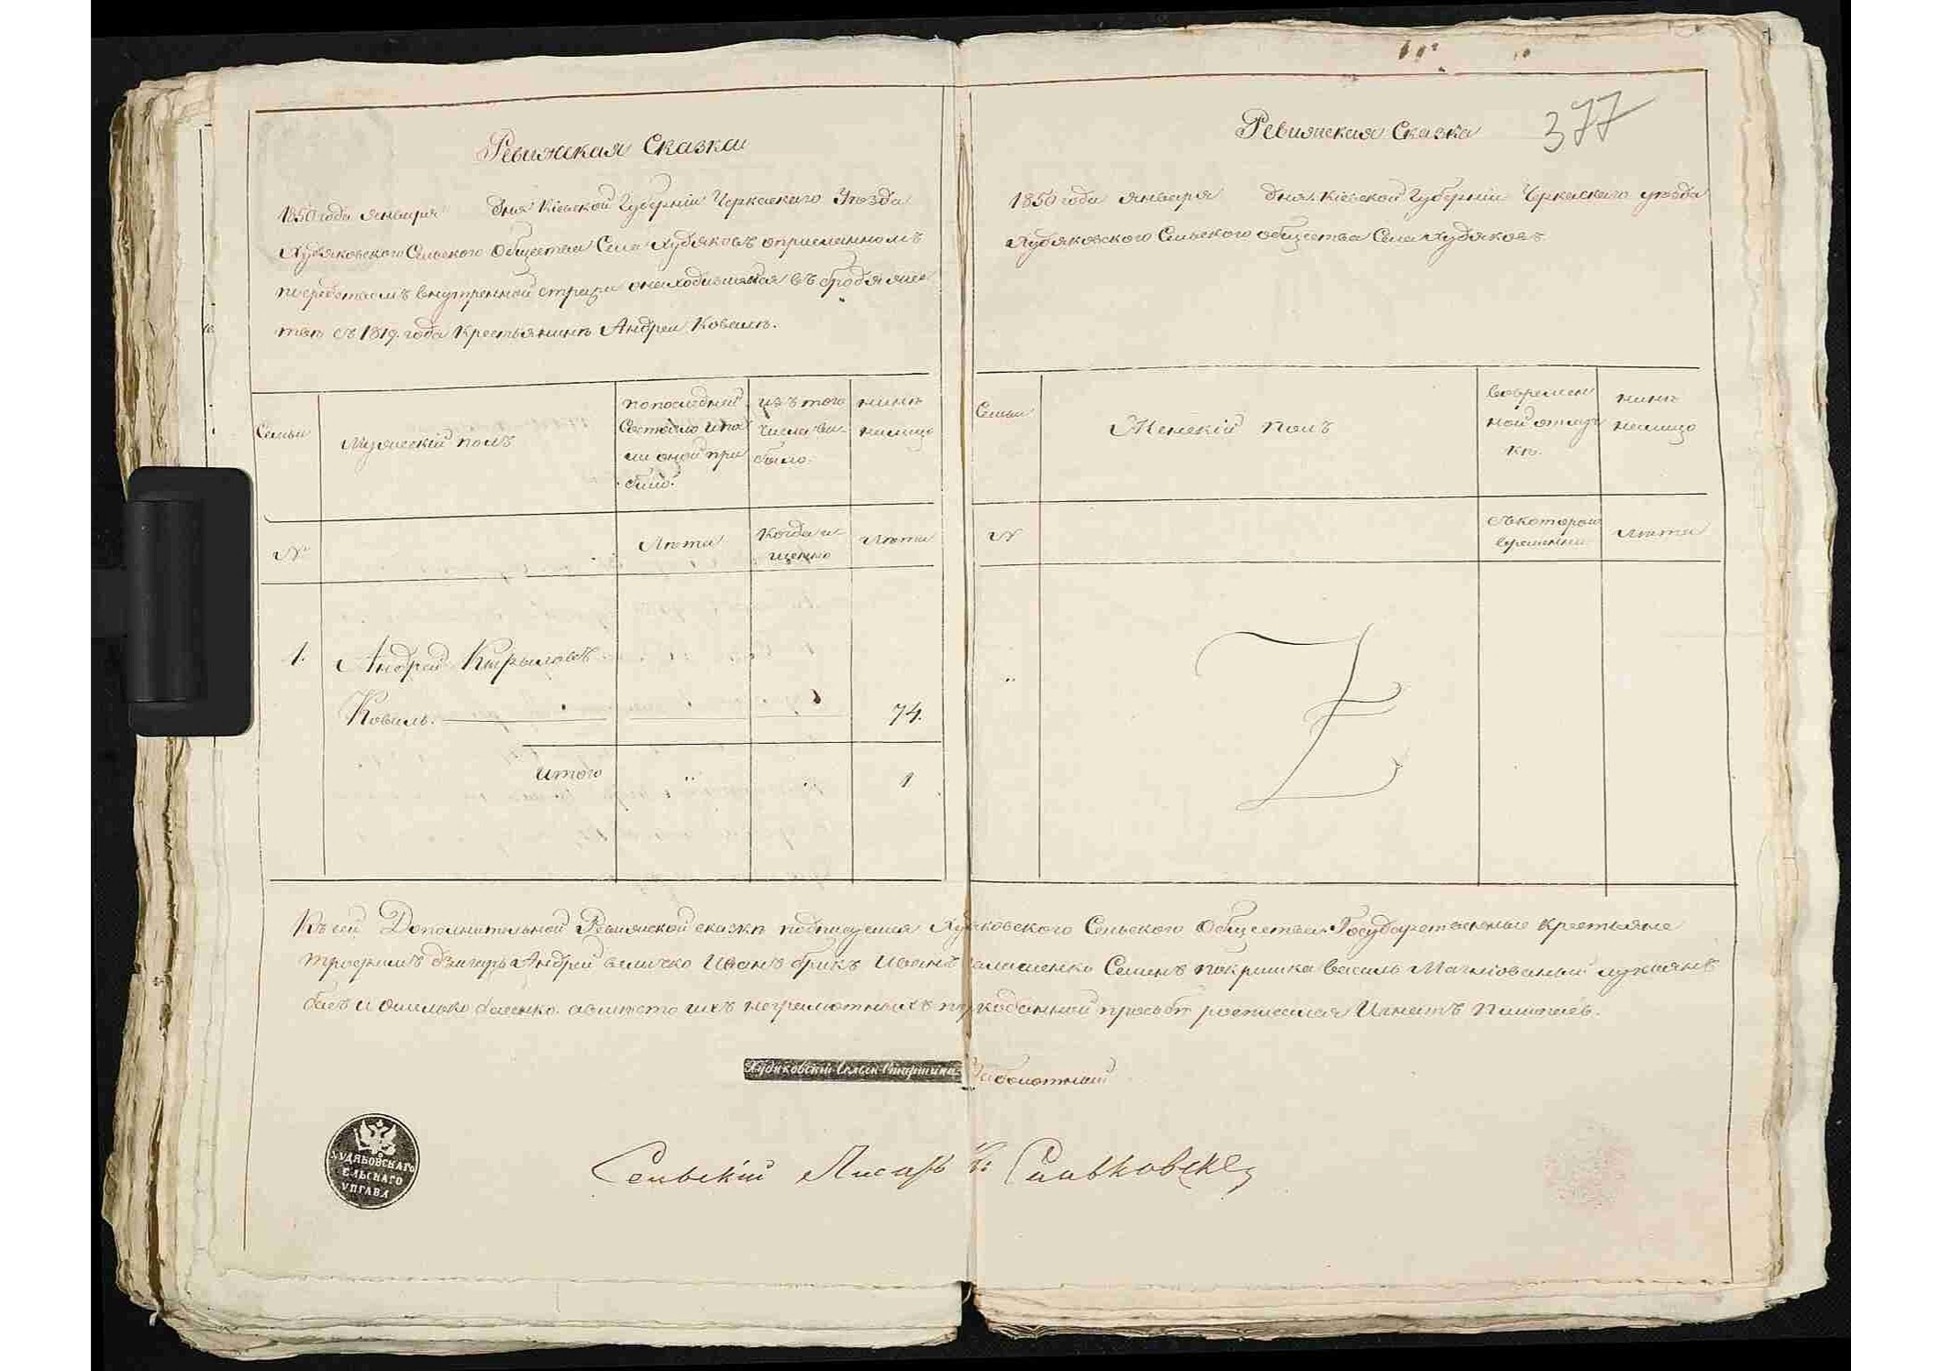 Ревижская Сказка
1850 года января дня Кіевской Губерніи Черкаскаго Уезда
Худяковского Сельского Общества Села Худяковъ описанномъ
внутренной стражи находившимся въ бродяже
съ 1819. года Крестьянинъ Андрей Коваль.
Семьи
Мужескій полъ
по последней
Состояло и по
сли оной при
было.
изъ того
числа вы-
было.
нынѣ
налицо
№
Лѣта
Когда и-
менно
Лѣта
1. Андрей Кирыловъ
Коваль. 74.
Итого " " 1
Ревижская Сказка
377
1850 года января дня Кіевской Губерніи Черкаскаго уезда
Худяковского Сельского общества Села Худяковъ
Семьи
Женскій полъ
Вовремен
ной отлуч
кѣ.
нынѣ
налицо
№
Съ котораго
времени
Лѣта
"
Къ сей Дополнительной Ревижской сказкѣ подписуемся Худяковского Сельского Общества Государственные крестьяне
Трофимъ Андрей величко Иванъ брикъ Иванъ Семенъ покришка василь лукіянъ
и неграмотныхъ просьбѣ росписался Игнатъ
Худяковскій Сельск Старшина Заболотный
ХУДЯКОВСКАГО
СЕЛЬСКАГО
УПРАВ
Сельскій Писарь Славковскі